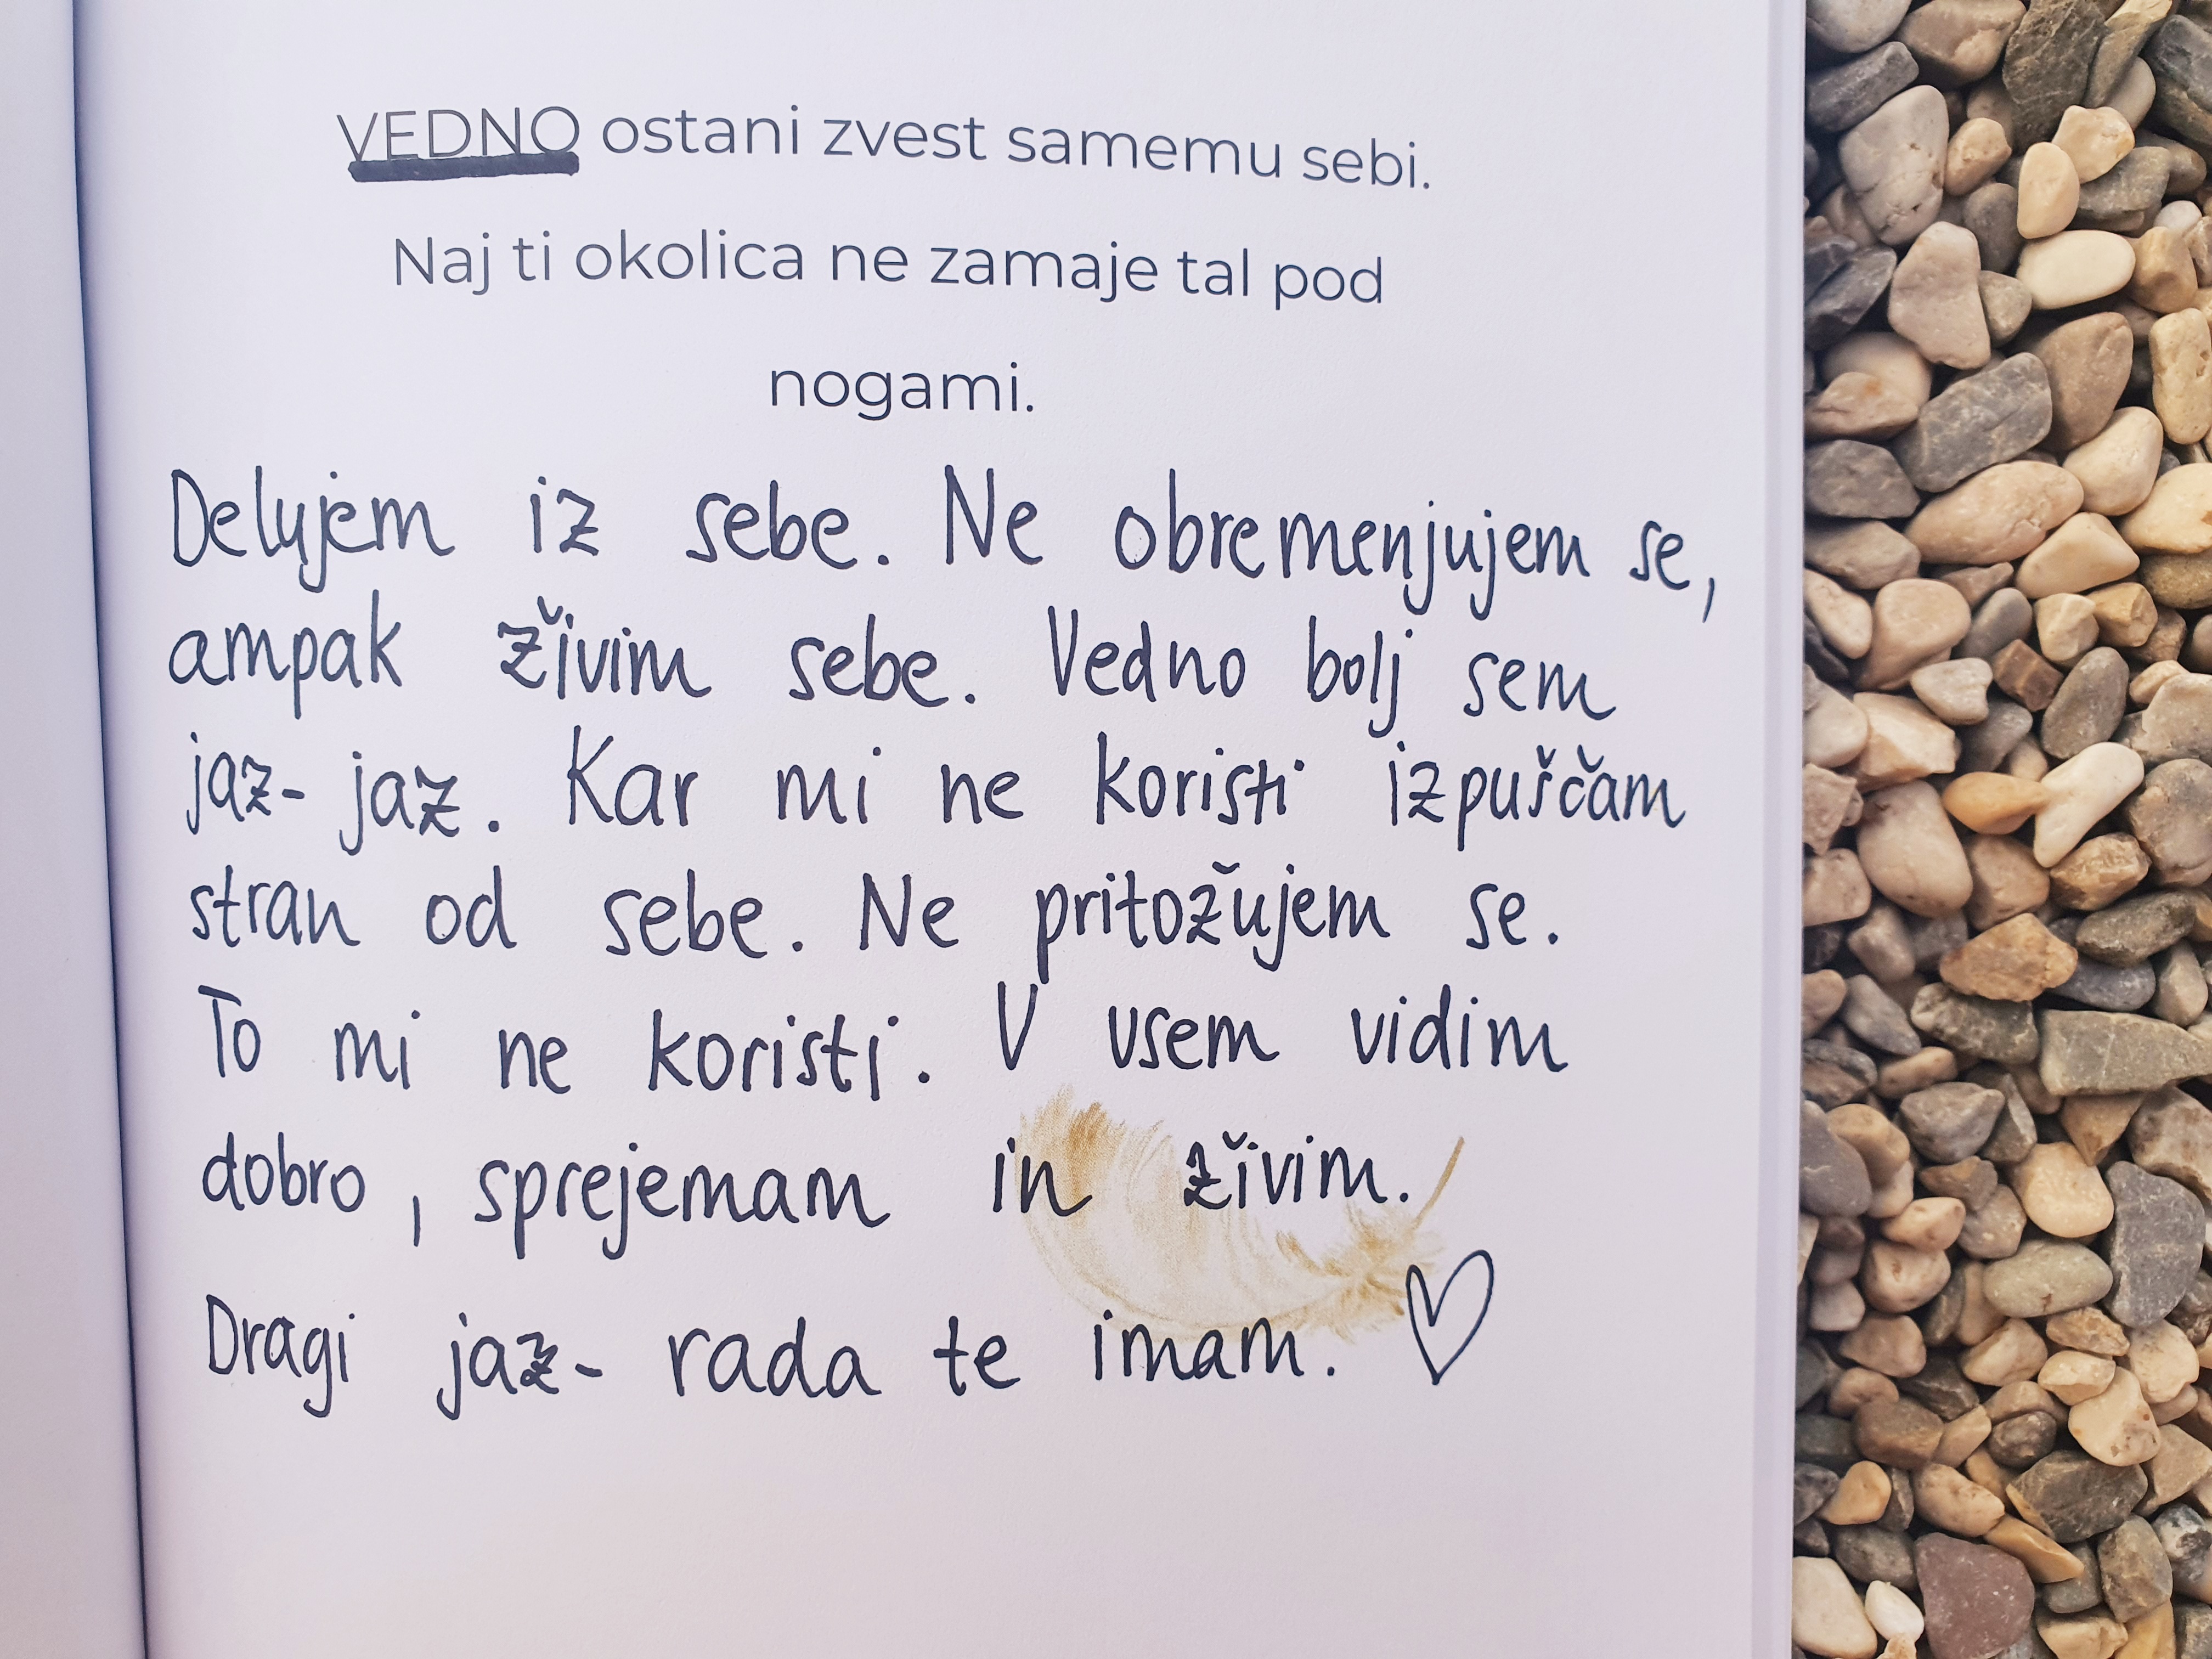 VEDNO ostani zvest samemu sebi.
Naj ti okolica ne zamaje tal pod
nogami.
Delujem iz sebe. Ne obremenjujem se,
ampak živim sebe. Vedno bolj sem
jaz- jaz. Kar mi ne koristi izpuščam
stran od sebe. Ne pritožujem se.
To mi ne koristi. V vsem vidim
dobro, sprejemam in živim.
Dragi jaz- rada te imam. ♡